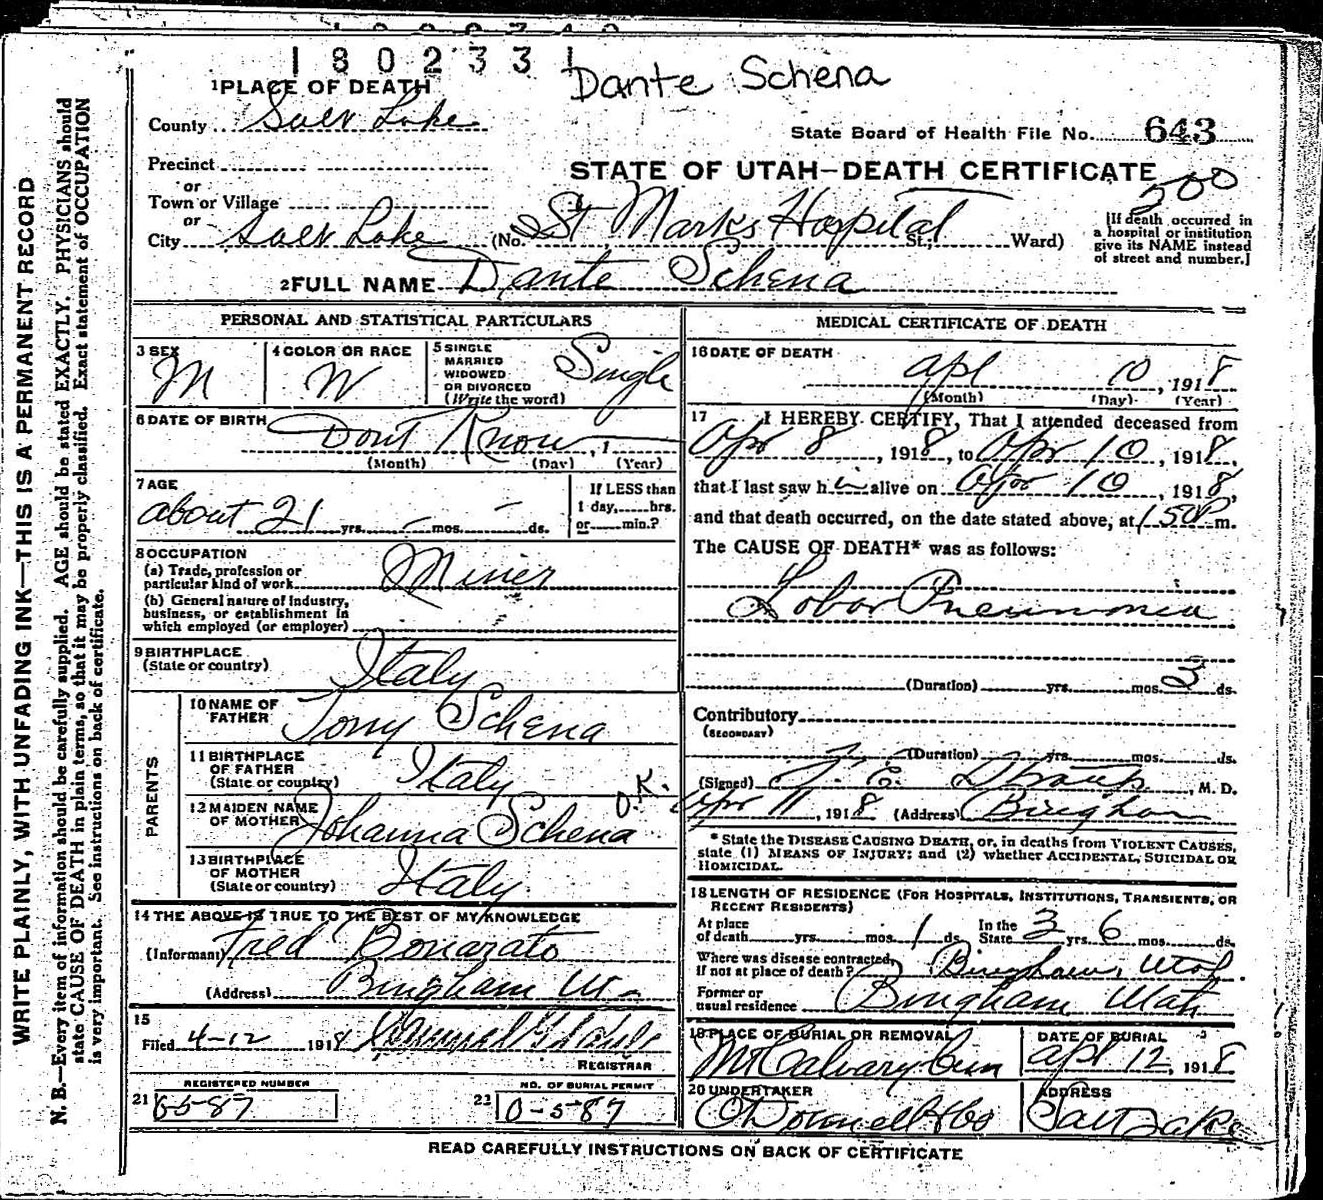 1802331
Dante Schena
1 PLACE OF DEATH
County Salt Lake
State Board of Health File No. 643
Precinct
STATE OF UTAH—DEATH CERTIFICATE
500
or
Town or Village
or
City Salt Lake (No. St Marks Hospital St.; Ward)
[If death occurred in
a hospital or institution
give its NAME instead
of street and number.]
2 FULL NAME Dante Schena
PERSONAL AND STATISTICAL PARTICULARS
3 SEX
M
4 COLOR OR RACE
W
5 SINGLE
MARRIED
WIDOWED
OR DIVORCED
(Write the word)
Single
6 DATE OF BIRTH Dont Know, 1
(Month) (Day) (Year)
7 AGE
about 21 yrs. - mos. - ds.
If LESS than
1 day, hrs.
or min.?
8 OCCUPATION
(a) Trade, profession or
particular kind of work Miner
(b) General nature of industry,
business, or establishment in
which employed (or employer)
9 BIRTHPLACE
(State or country) Italy
PARENTS
10 NAME OF
FATHER Tony Schena
11 BIRTHPLACE
OF FATHER
(State or country) Italy
12 MAIDEN NAME
OF MOTHER Johanna Schena O.K.
13 BIRTHPLACE
OF MOTHER
(State or country) Italy
14 THE ABOVE IS TRUE TO THE BEST OF MY KNOWLEDGE
(Informant) Fred Bonarato
(Address) Bingham Ut
15
Filed 4-12 1918
REGISTRAR
REGISTERED NUMBER
21 6587
NO. OF BURIAL PERMIT
22 0-587
MEDICAL CERTIFICATE OF DEATH
16 DATE OF DEATH
Apl 10, 1918
(Month) (Day) (Year)
17 I HEREBY CERTIFY, That I attended deceased from
Apr 8, 1918, to Apr 10, 1918,
that I last saw h i alive on Apr 10, 1918,
and that death occurred, on the date stated above, at 150 P m.
The CAUSE OF DEATH* was as follows:
Lobar Pneumonia
(Duration) yrs. mos. 3 ds.
Contributory
(SECONDARY)
(Duration) yrs. mos. ds.
(Signed) F. E. Straup, M. D.
Apr 11, 1918 (Address) Bingham
* State the DISEASE CAUSING DEATH, or, in deaths from VIOLENT CAUSES,
state (1) MEANS OF INJURY; and (2) whether ACCIDENTAL, SUICIDAL OR
HOMICIDAL.
18 LENGTH OF RESIDENCE (FOR HOSPITALS, INSTITUTIONS, TRANSIENTS, OR
RECENT RESIDENTS)
At place
of death yrs. mos. 1 ds. In the
State 3 yrs. 6 mos. ds.
Where was disease contracted,
if not at place of death? Bingham, Utah.
Former or
usual residence Bingham Utah
19 PLACE OF BURIAL OR REMOVAL
Mt Calvary Cem
DATE OF BURIAL
Apl 12, 1918
20 UNDERTAKER
O'Donnell & Co
ADDRESS
Salt Lake
READ CAREFULLY INSTRUCTIONS ON BACK OF CERTIFICATE
WRITE PLAINLY, WITH UNFADING INK—THIS IS A PERMANENT RECORD
N. B.—Every item of information should be carefully supplied. AGE should be stated EXACTLY. PHYSICIANS should
state CAUSE OF DEATH in plain terms, so that it may be properly classified. Exact statement of OCCUPATION
is very important. See instructions on back of certificate.